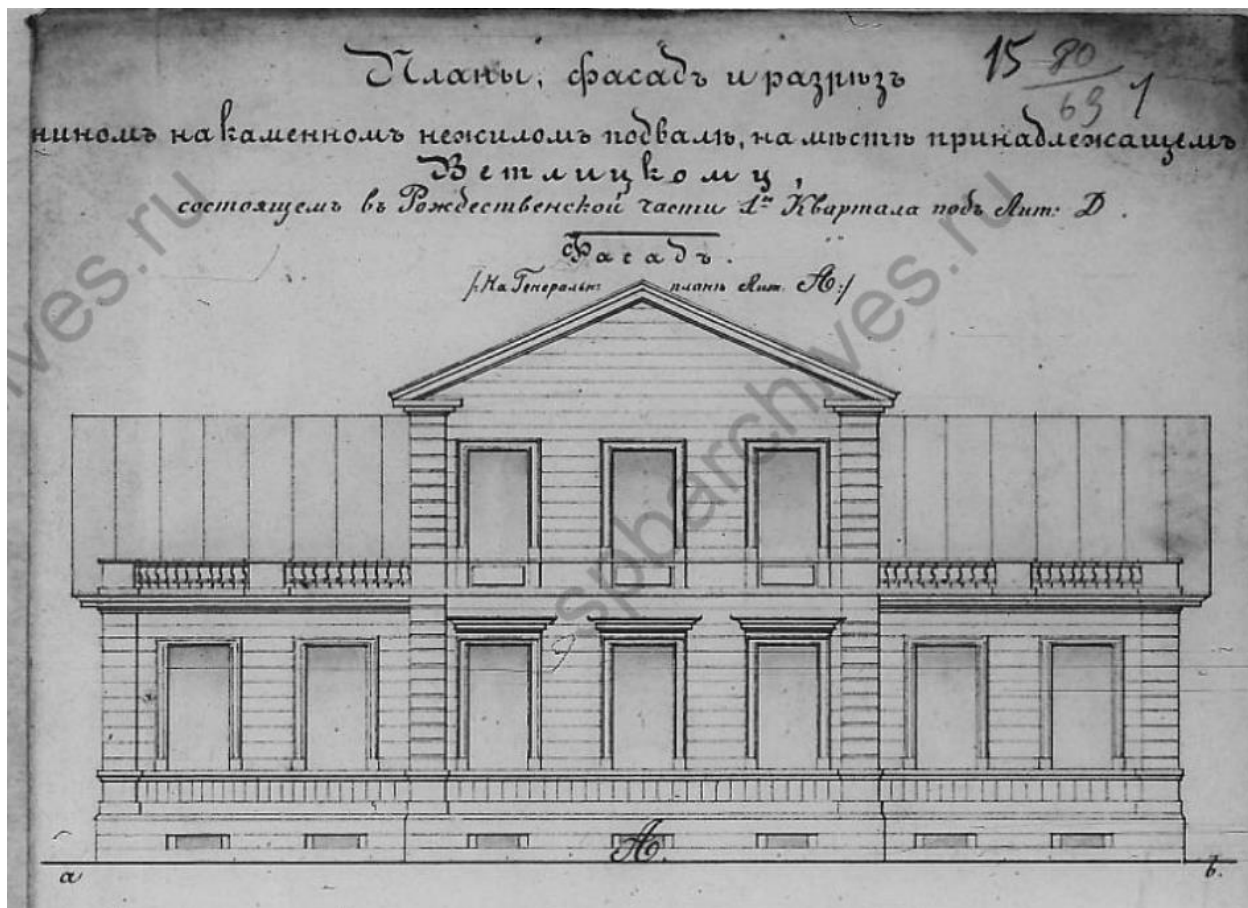 Планы, фасадъ и разрѣзъ
15 80/63 1
ниномъ на каменномъ нежиломъ подвалѣ, на мѣстѣ принадлежащемъ
Ветлицкому,
состоящемъ въ Рождественской части 1го Квартала подъ Лит: Д.
Фасадъ.
/:На Генеральн: планѣ Лит. А:/
А.
а
b.
ves.ru
spbarchives.ru